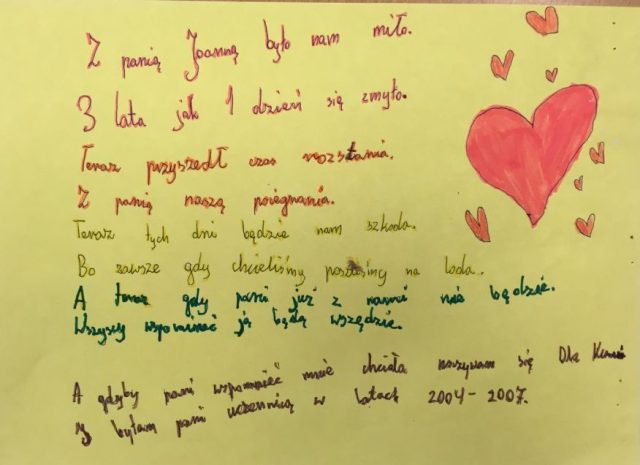 Z panią Joanną było nam miło.
3 lata jak 1 dzień się zmyło.
Teraz przyszedł czas rozstania.
Z panią naszą pożegnania.
Teraz tych dni będzie nam szkoda.
Bo zawsze gdy chcieliśmy poszliśmy na loda.
A teraz gdy pani już z nami nie będzie.
Wszyscy wspominać ją będą wszędzie.
A gdyby pani wspomnieć mnie chciała nazywam się
byłam pani uczennicą w latach 2004-2007.